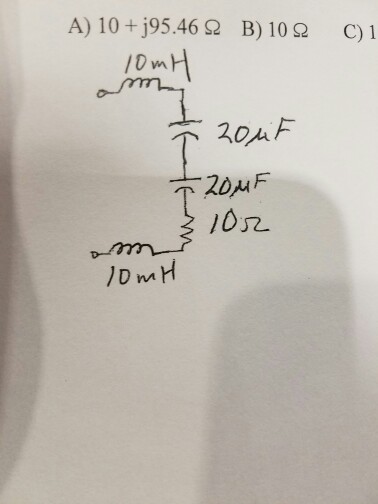 A) 10 + j95.46 Ω B) 10 Ω C) 1
10mH
20μF
20μF
10Ω
10mH